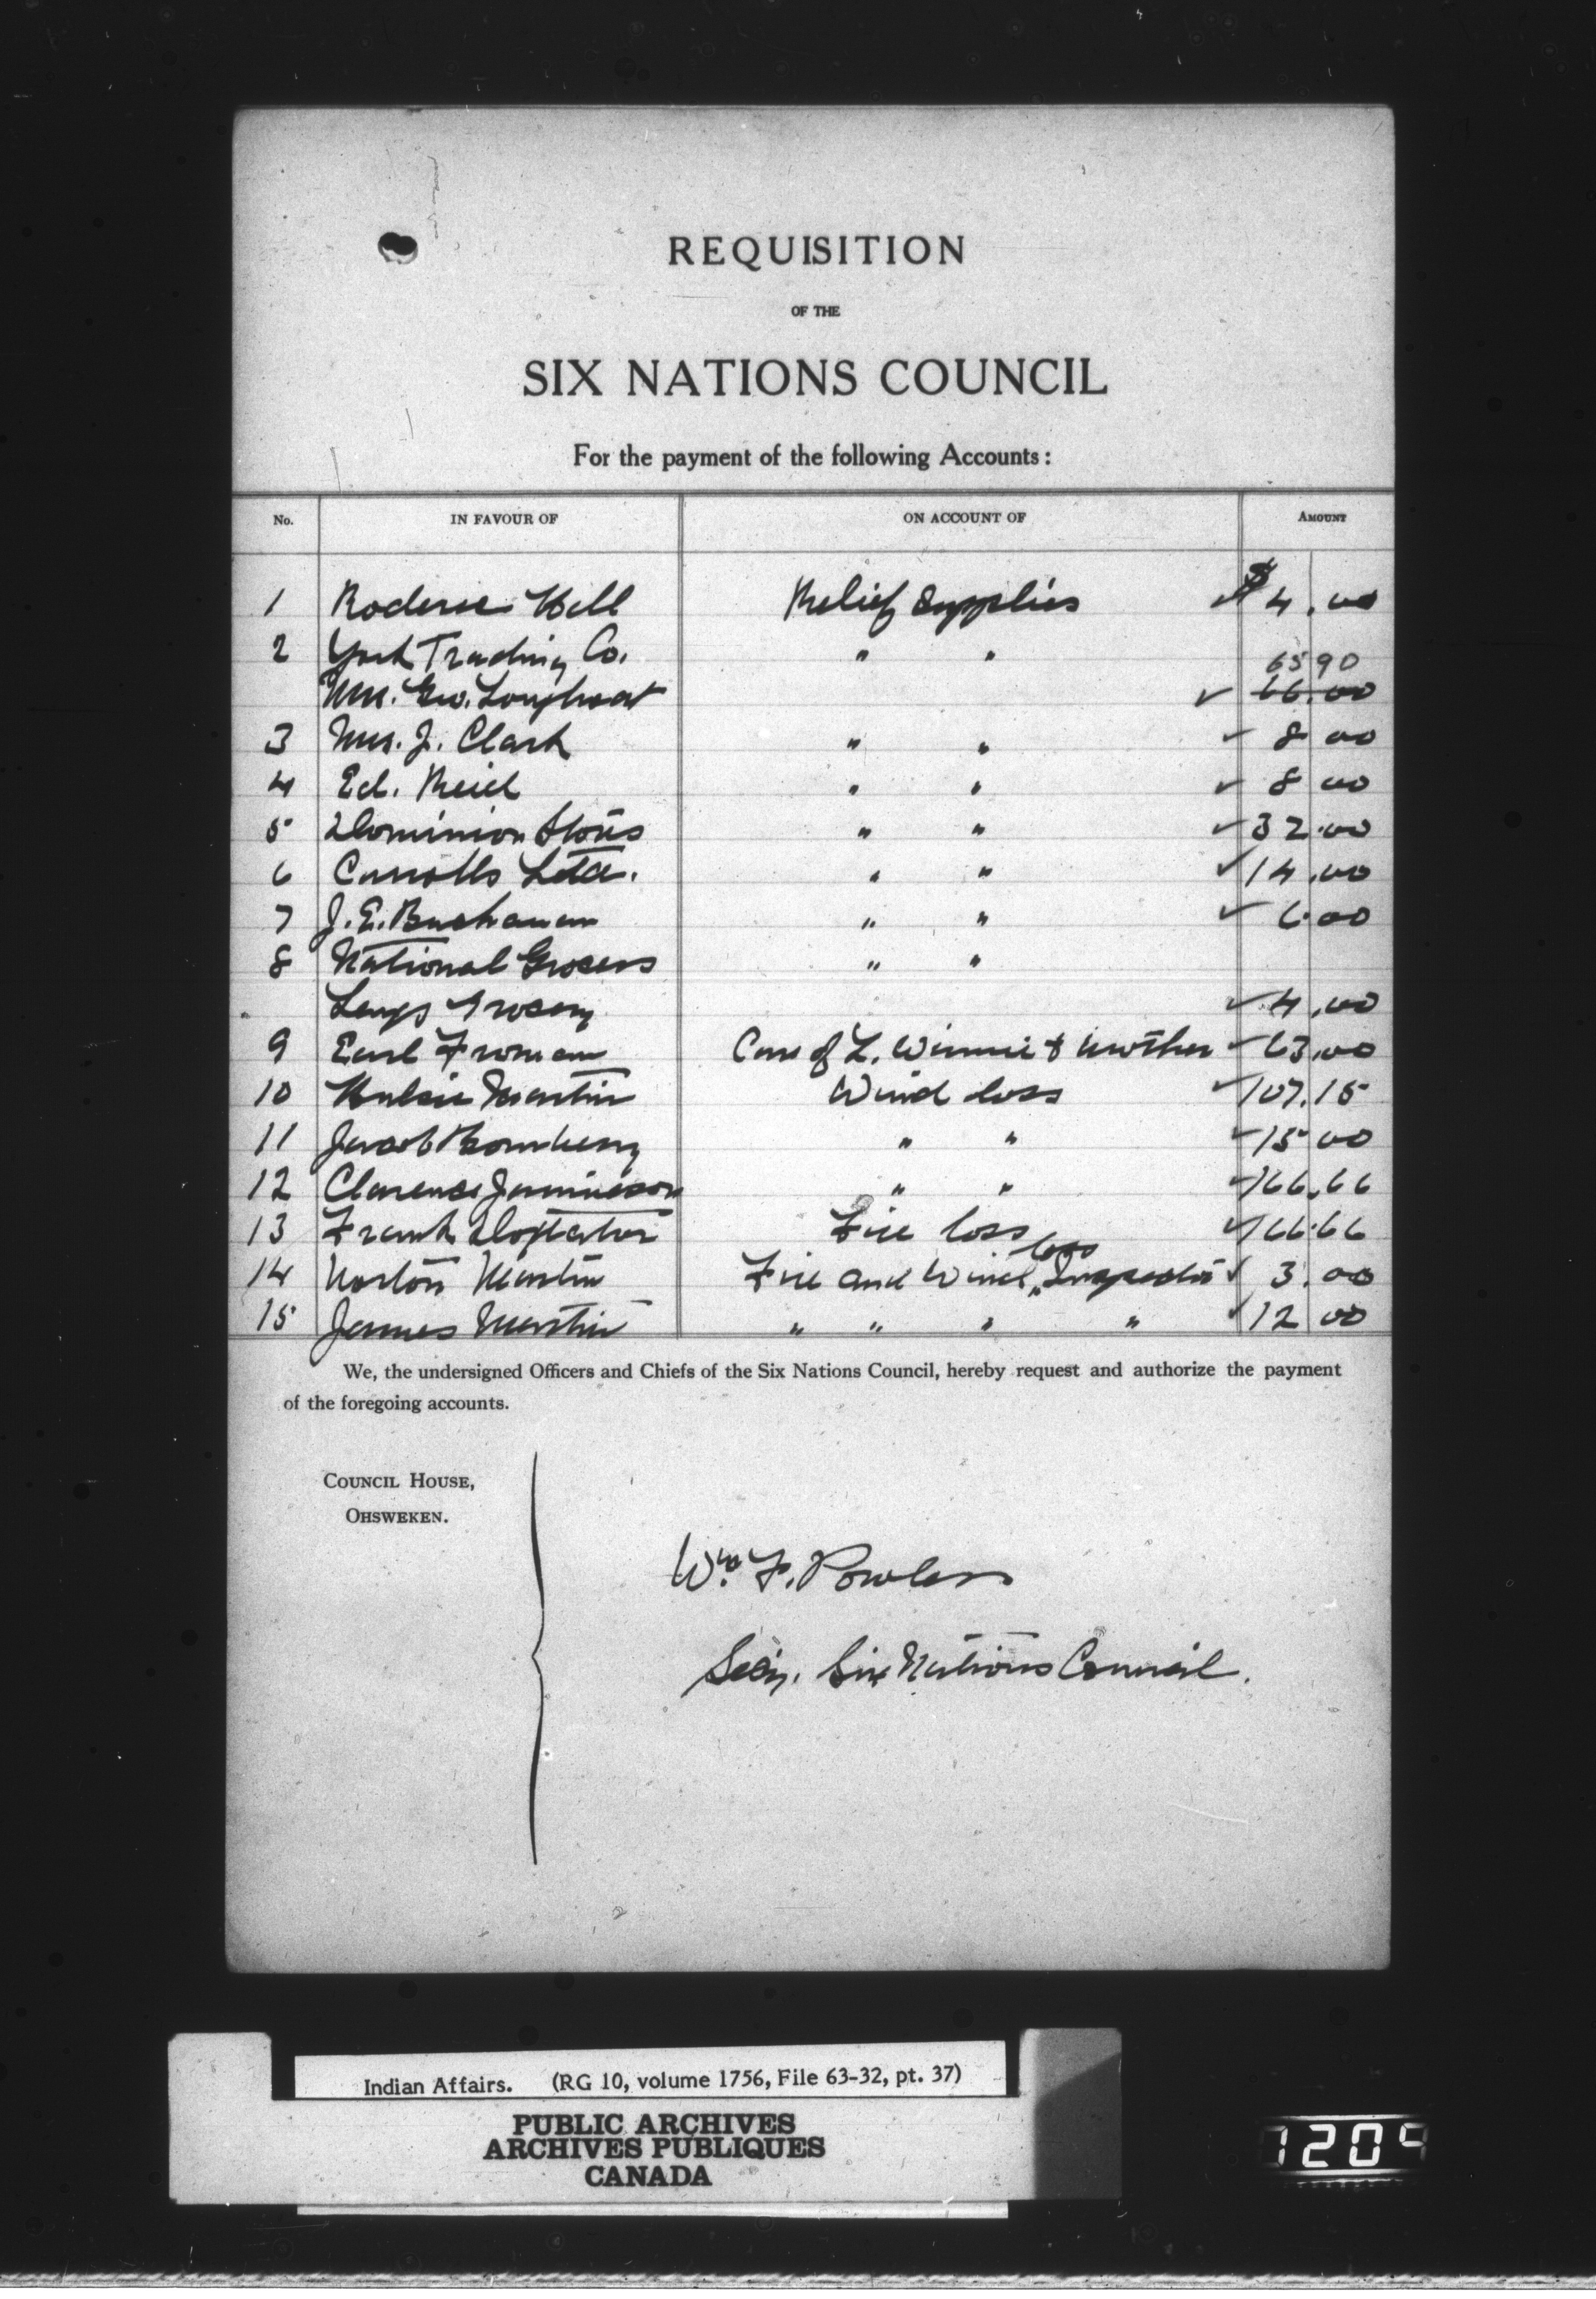 REQUISITION
OF THE
SIX NATIONS COUNCIL
For the payment of the following Accounts:
No. IN FAVOUR OF ON ACCOUNT OF AMOUNT
1 Hill Relief Supplies ✓ $4.00
2 York Trading Co. " " 65 90
Mrs. Geo. Longboat ✓ 66.00
3 Mrs. J. Clark " " ✓ 8 00
4 Ed. Reid " " ✓ 8 00
5 Dominion Stores " " ✓ 32.00
6 Carrolls Ltd. " " ✓ 14.00
7 J. E. Buchanan " " ✓ 6.00
8 National Grocers " "
Grocery ✓ 4.00
9 Earl Froman Care of L. Winnie & Mother ✓ 63.00
10 Martin Wind loss ✓ 107.15
11 Jacob Bomberry " " ✓ 15 00
12 Clarence Jamieson " " ✓ 166.66
13 Frank Doxtator Fire loss ✓ 166.66
14 Norton Martin Fire and Wind loss Inspector ✓ 3.00
15 James Martin " " " " ✓ 12 00
We, the undersigned Officers and Chiefs of the Six Nations Council, hereby request and authorize the payment
of the foregoing accounts.
COUNCIL HOUSE,
OHSWEKEN.
Wm. F. Powless
Sec'y. Six Nations Council.
Indian Affairs. (RG 10, volume 1756, File 63-32, pt. 37)
PUBLIC ARCHIVES
ARCHIVES PUBLIQUES
CANADA
1209